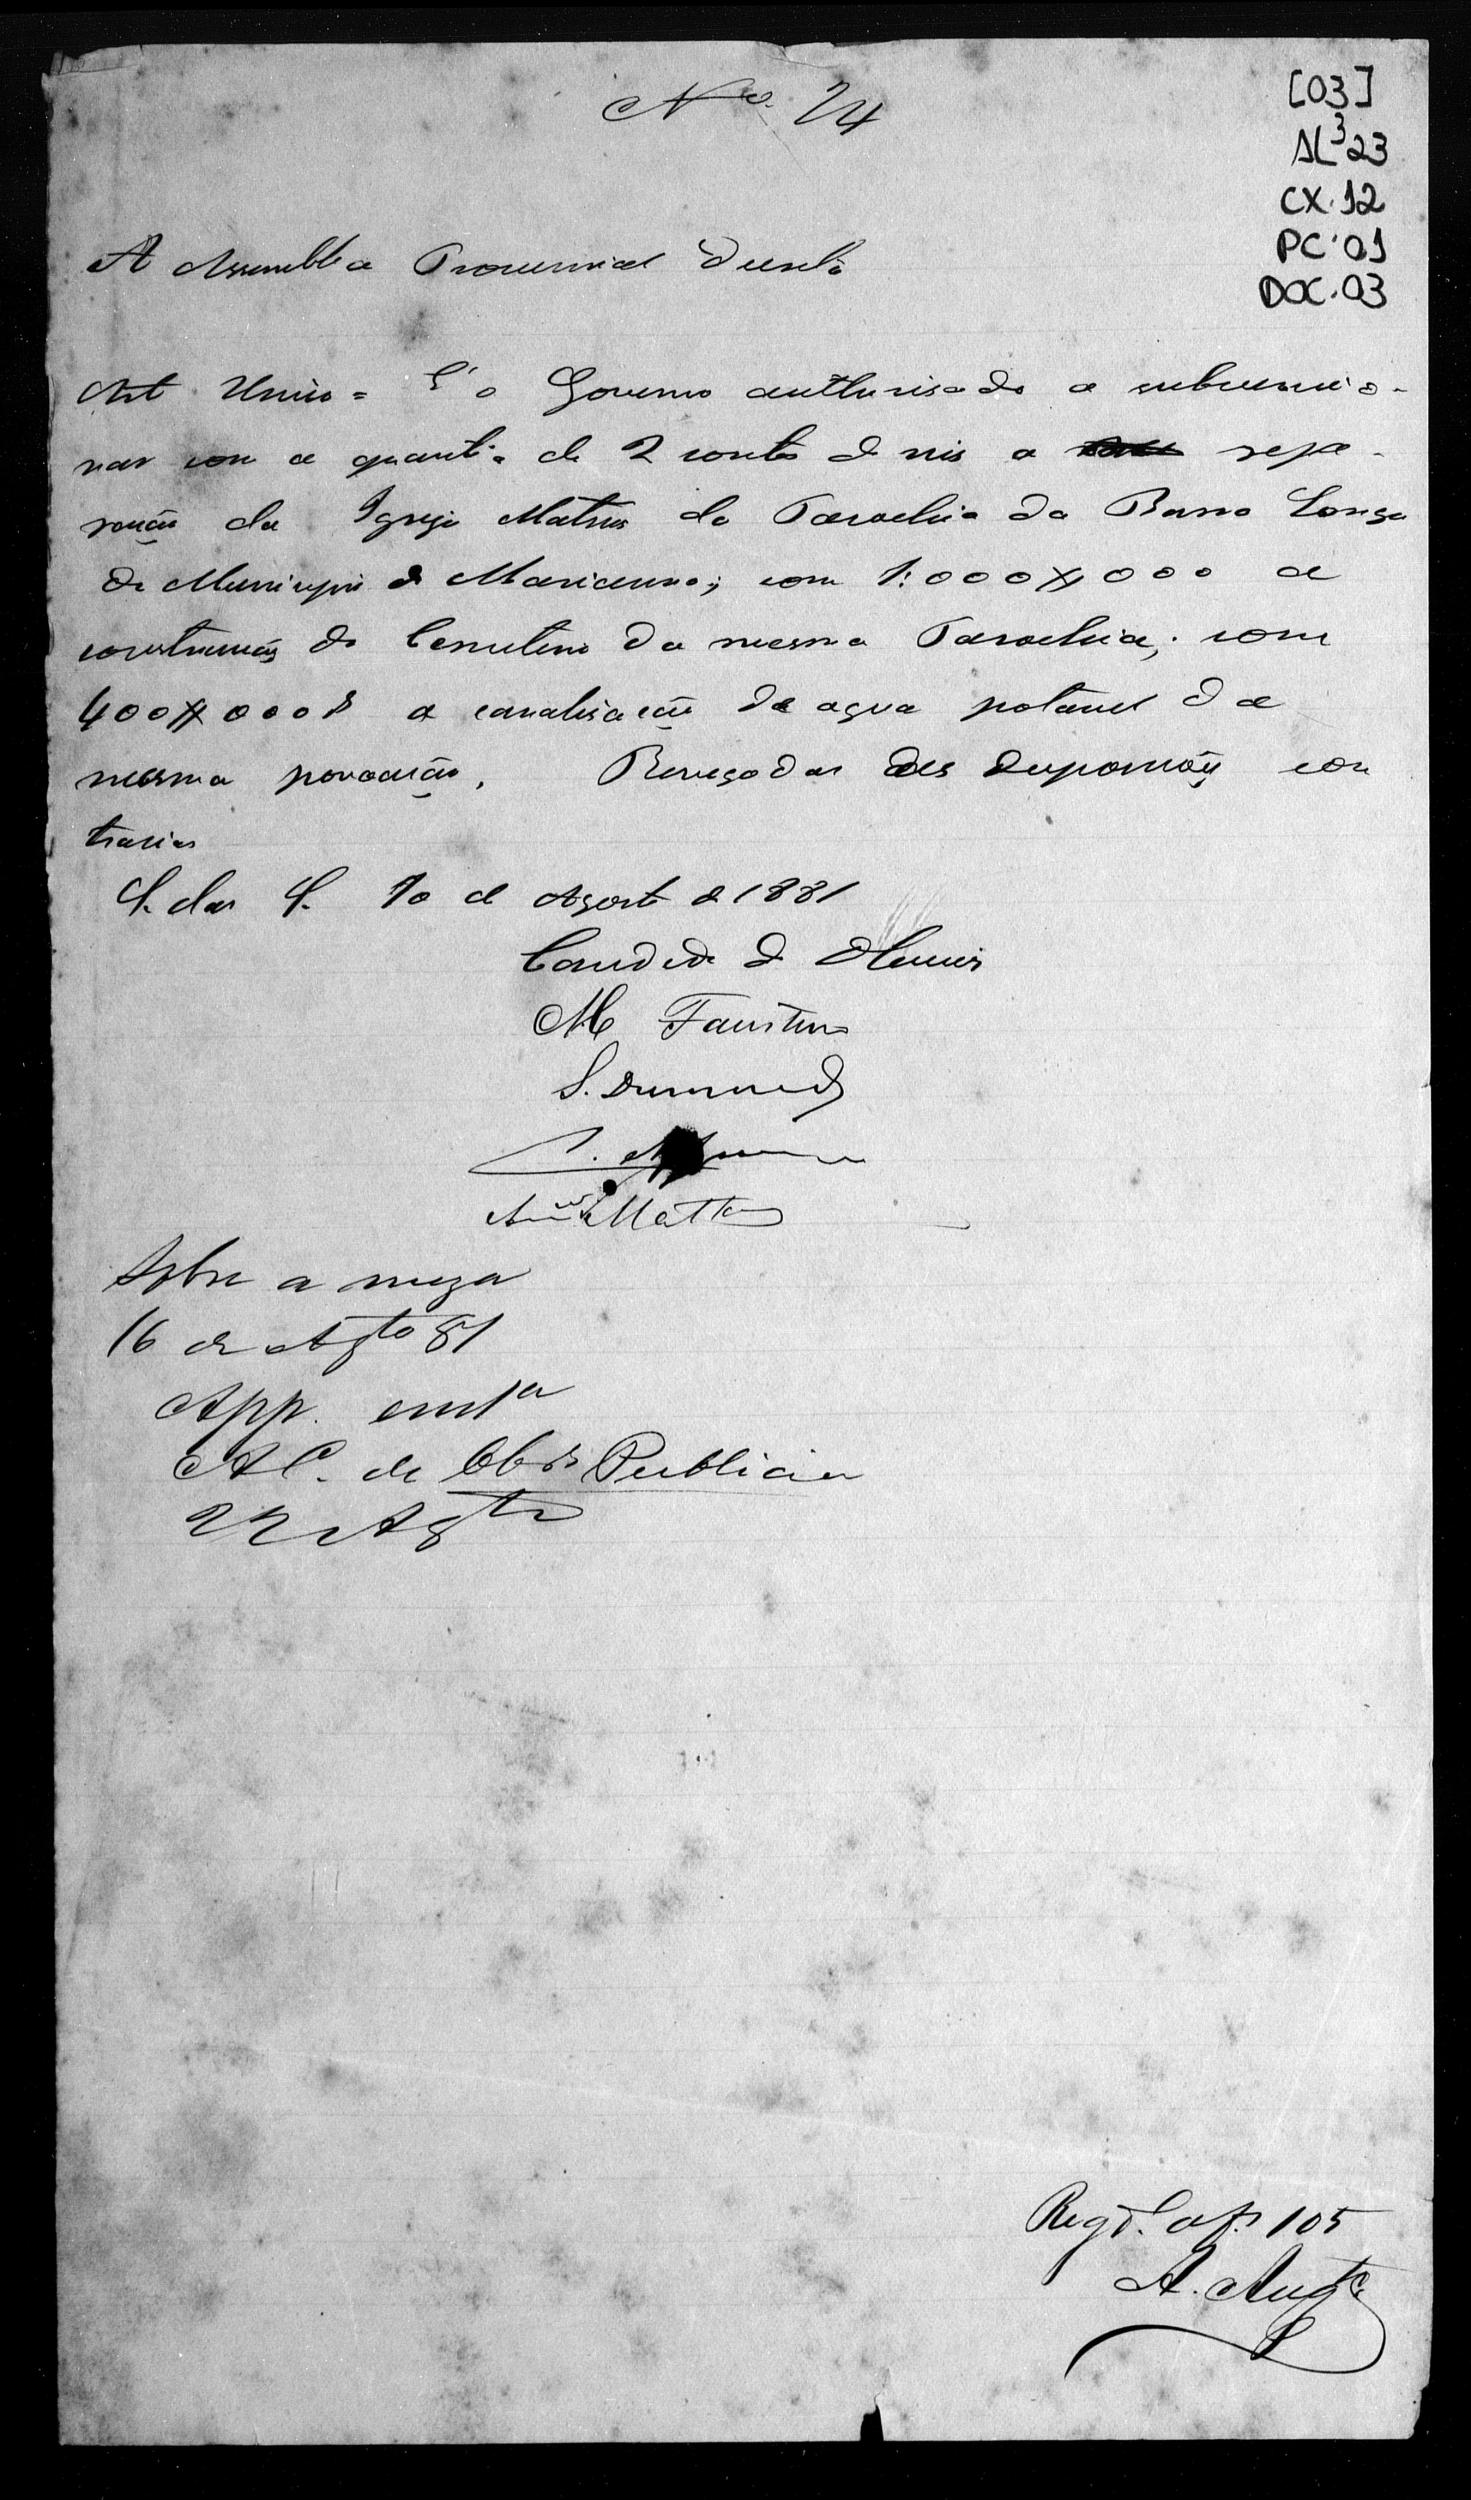 Nº 24
[03]
AL³23
CX.12
PC.01
DOC.03
A Assemblea Provincial Decreta
Art Unico = É o Governo authorisado a subvencio-
nar com a quantia de 2 contos de reis a repa-
ração da Igreja Matris da Parochia da Barra Longa
do Municipio de Marianna; com 1:000$000 a
construcção do Cemiterio da mesma Parochia; com
400$000 rs a canalisação de agua potavel da
mesma povoação. Revogadas as disposições con
trarias
S. das S. 10 de Agosto de 1881
Candido de Oliveira
M Faustino
S. Drumond
Mattos
Sobre a meza
16 de Agto 81
App. em 1a
A C. de Obrs Publicas
22 Agto
Regda a fs. 105
A. Augto